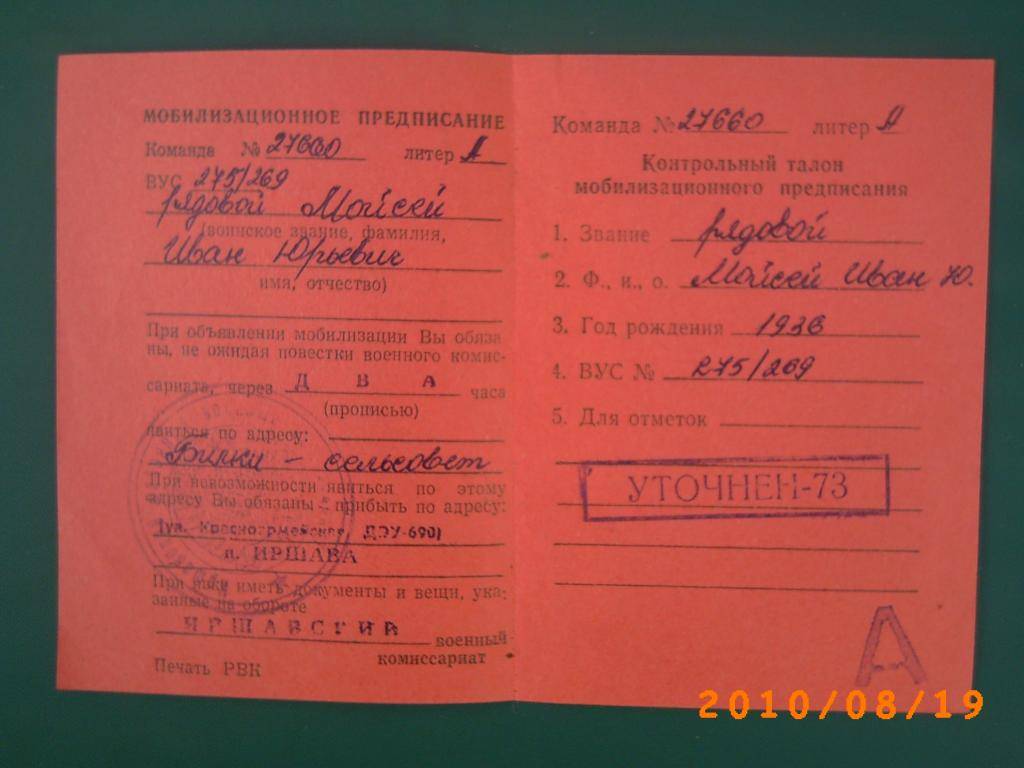 МОБИЛИЗАЦИОННОЕ ПРЕДПИСАНИЕ
Команда № 27660 литер А
ВУС 275/269
рядовой Мойсей
(воинское звание, фамилия,
Иван Юрьевич
имя, отчество)
При объявлении мобилизации Вы обяза
ны, не ожидая повестки военного комис-
сариата, через ДВА часа
(прописью)
явиться по адресу:
Билки – сельсовет
При невозможности явиться по этому
адресу Вы обязаны прибыть по адресу:
(ул. Красноармейская ДЭУ-690)
п. ИРШАВА
При явке иметь документы и вещи, ука-
занные на обороте
ИРШАВСКИЙ военный
комиссариат
Печать РВК
Команда № 27660 литер А
Контрольный талон
мобилизационного предписания
1. Звание рядовой
2. Ф., и., о. Мойсей Иван Ю.
3. Год рождения 1936
4. ВУС № 275/269
5. Для отметок
УТОЧНЕН-73
А
2010/08/19